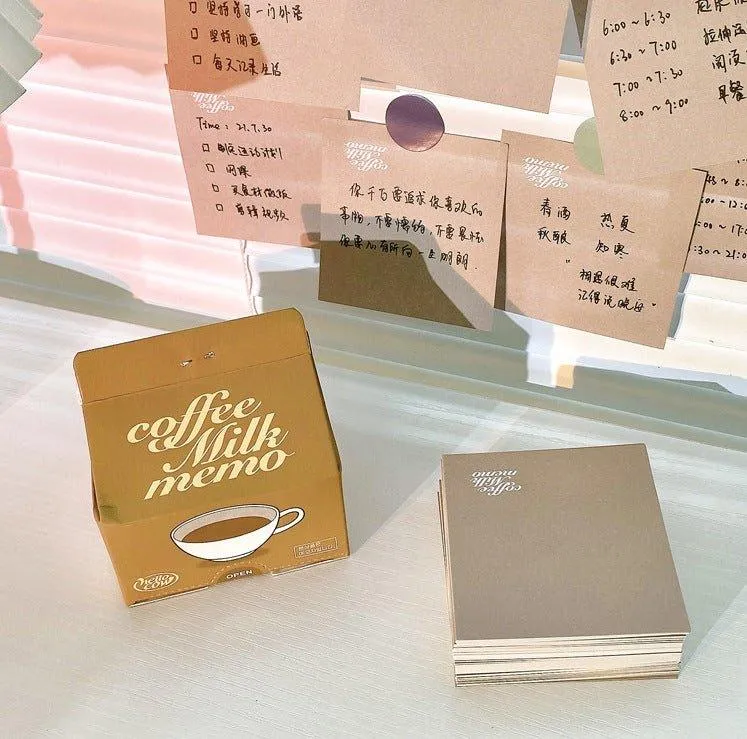 坚持学习一门外语
坚持画画
每天记录生活
6:00 ~ 6:30
6:30 ~ 7:00
7:00 ~ 7:30
8:00 ~ 9:00
拉伸运
阅读
早餐
coffee
Milk
memo
Time: 21.7.30
制定运动计划
网课
剪辑视频
coffee
Milk
memo
你千万要追求你喜欢的
事物,不要懒惰,不要畏怯
你要心有所向一生明朗.
coffee
Milk
memo
春酒 热夏
秋酿 知寒
"相遇很难
记得说晚安"
coffee
Milk
memo
hello
cow
OPEN
coffee
Milk
memo